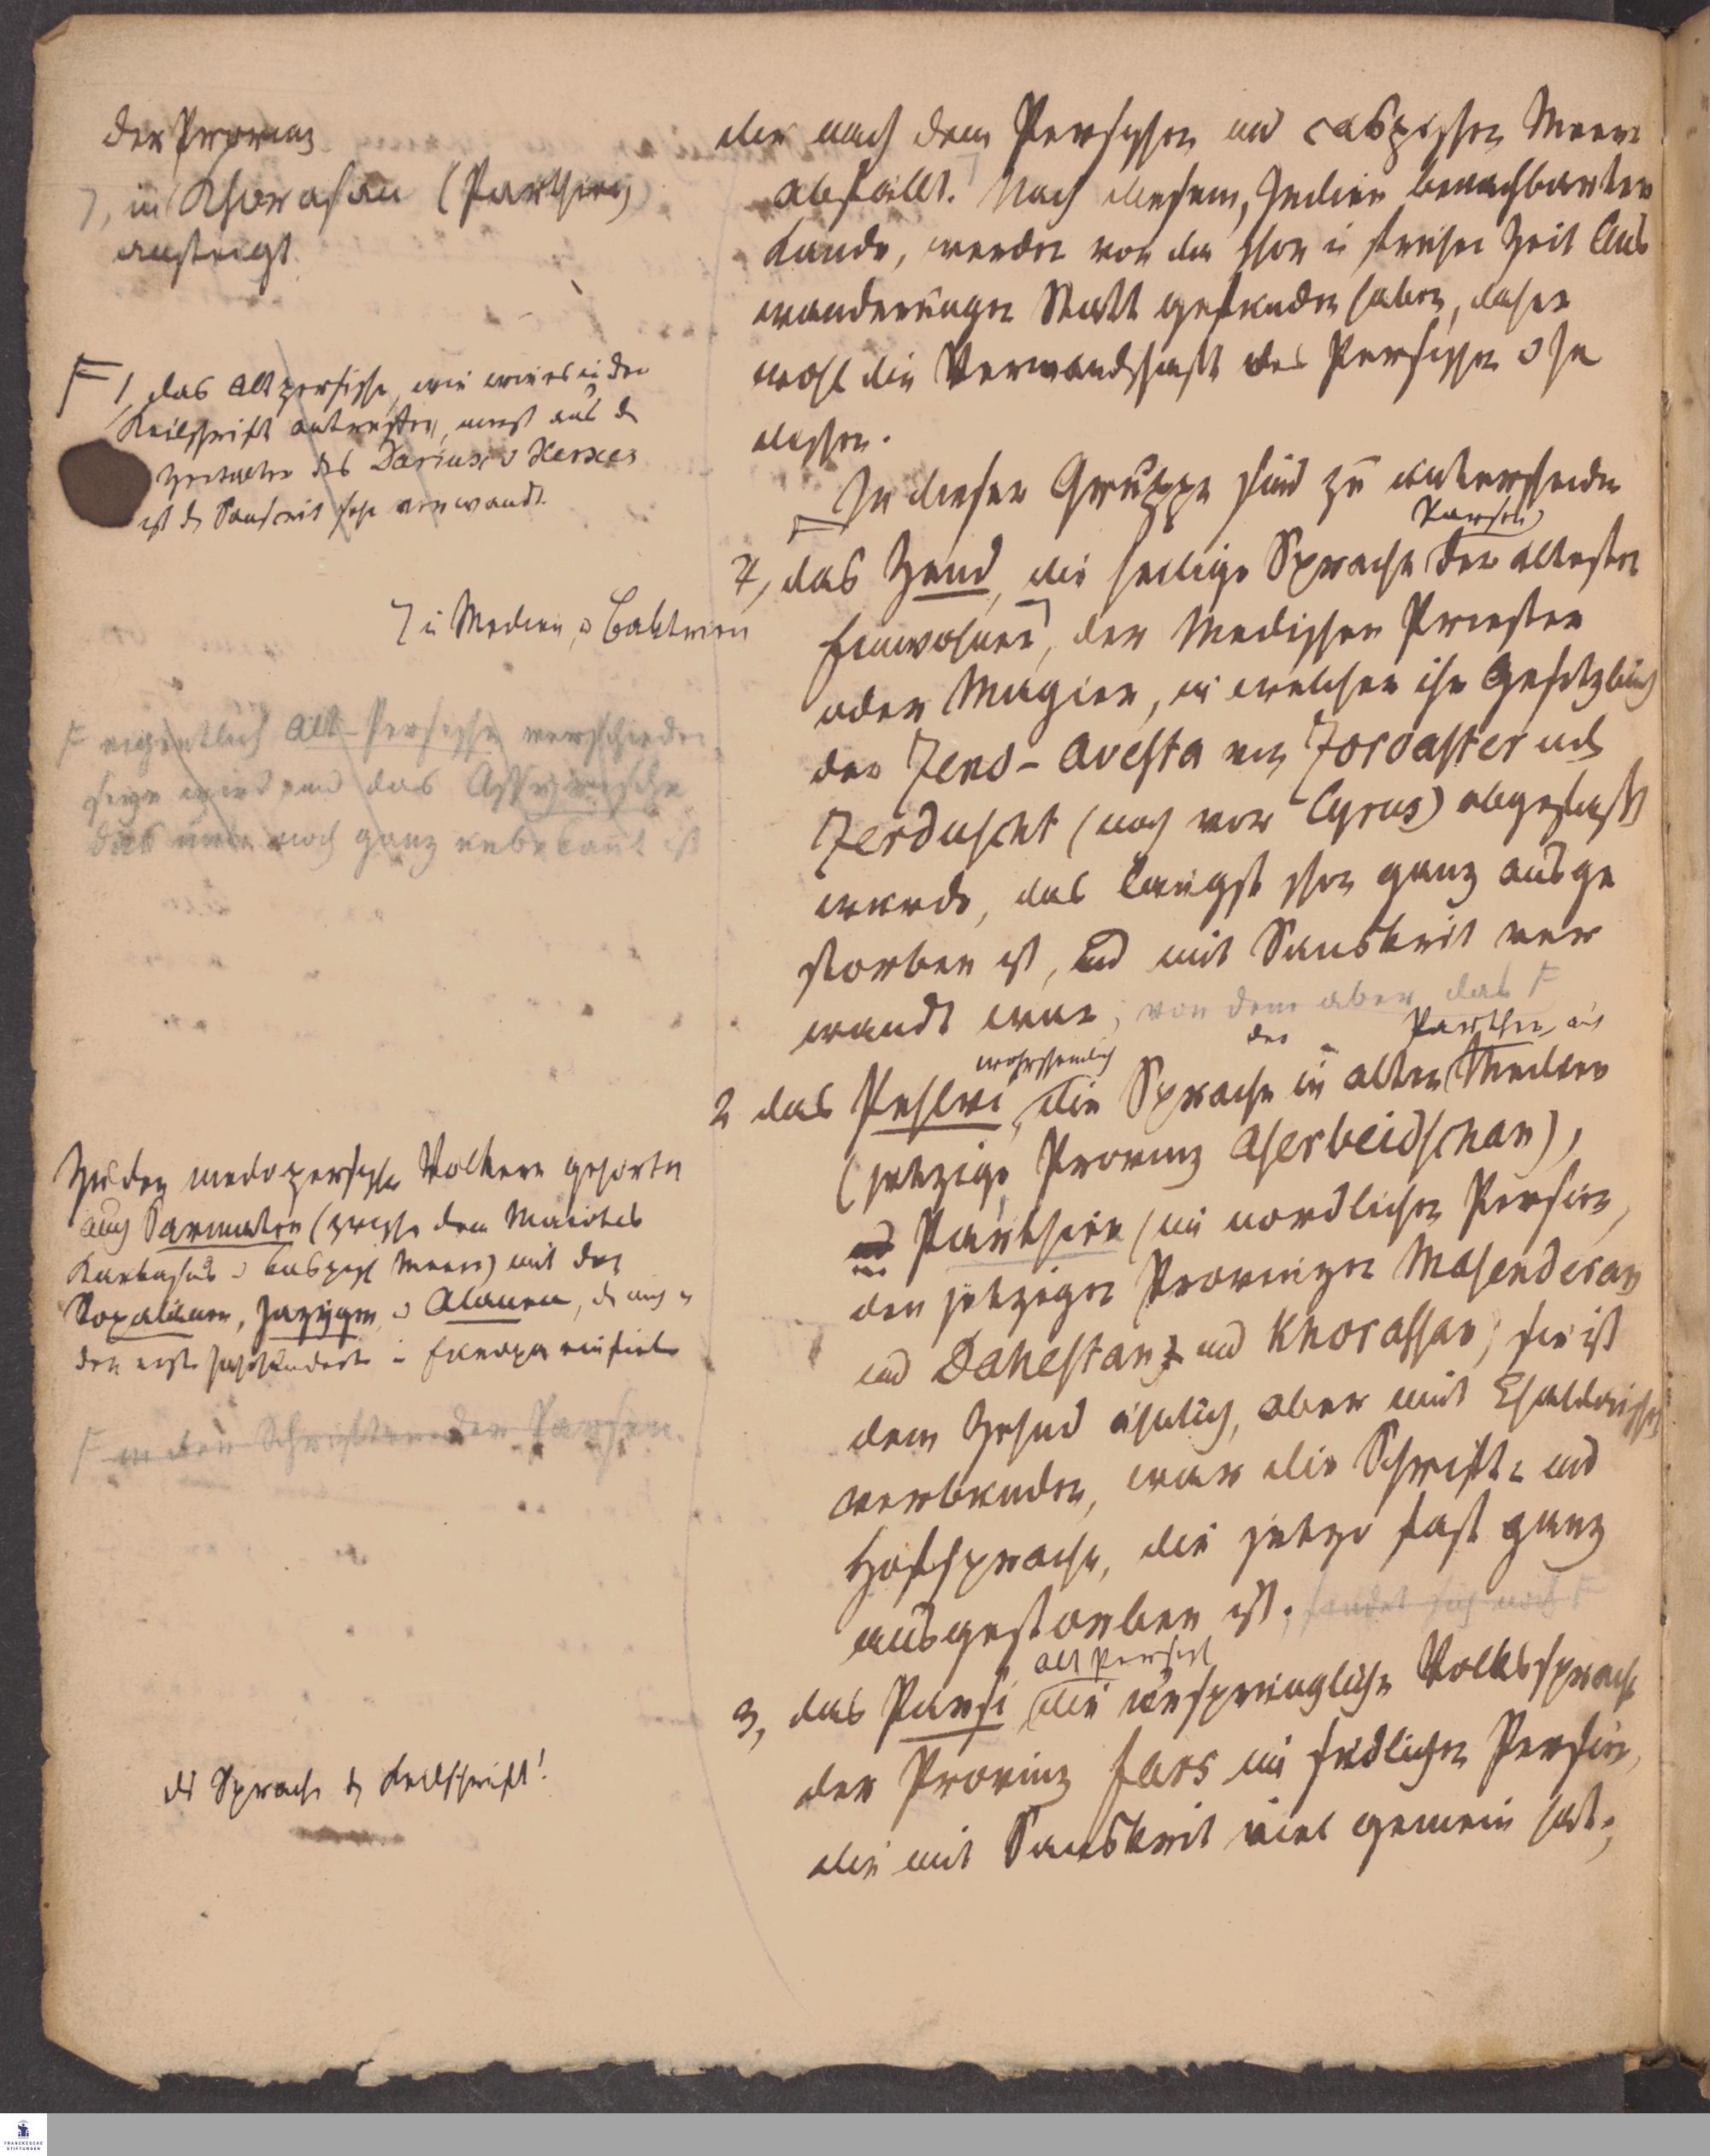 der Provinz
7, in Khorasan (Parthien)
ansteigt.
F 1, das Altpersische, wie wir es in den
Keilschrift antreffen, meist aus d
Zeitalter des Darius u Xerxes
ist d Sanscrit sehr verwandt.
7 in Medien, u Baktrien
F eigentlich Alt-Persische verschieden
seyn wird und das Assyrische
das nun noch ganz unbekannt ist
Zu den medopersischen Völkern gehörten
auch Sarmaten (zwischen dem Maiotis
Kaukasus u kaspisch Meere) mit den
Roxalanen, Jazygen, u Alanen, d auch in
den erste Jahrhunderte in Europa einfielen
F in den Schriften der Parsen.
die Sprache d Keilschrift!
die nach dem Persischen und caspischen Meere
abfällt. Nach diesem, Indien benachbarten
Lande, werden von da schon in früher Zeit Aus
wanderungen Statt gefunden haben, daher
wohl die Verwandschaft des Persischen u In
dischen.
In dieser Gruppe sind zu unterscheiden
F Parsen
1, das Zend, die heilige Sprache der ältesten
Einwohner, der Medischen Priester
oder Magier, in welcher ihr Gesetzbuch
der Zend-Avesta von Zoroaster und
Zerduscht (noch vor Cyrus) abgefasst
wurde, das längst schon ganz ausge
storben ist, und mit Sanskrit ver
wandt war; von dem aber das F
wahrscheinlich der Parther, in
2 das Pehlvi, die Sprache in alten Medien
(jetzige Provinz Aserbeidschan),
und Parthien (im nordlichen Persien,
den jetzigen Provinzen Masenderan
und Dahestan, und Khorassan; sie ist
dem Zehnd ähnlich, aber mit Chaldäisch
verbunden, war die Schrift- und
Hofsprache, die jetzo fast ganz
ausgestorben ist. findet sich noch F
alt persisch
3, das Parsi, die ursprüngliche Volkssprache
der Provinz Fars im südlichen Persien,
die mit Sanskrit viel gemein hat;
FRANCKESCHE
STIFTUNGEN